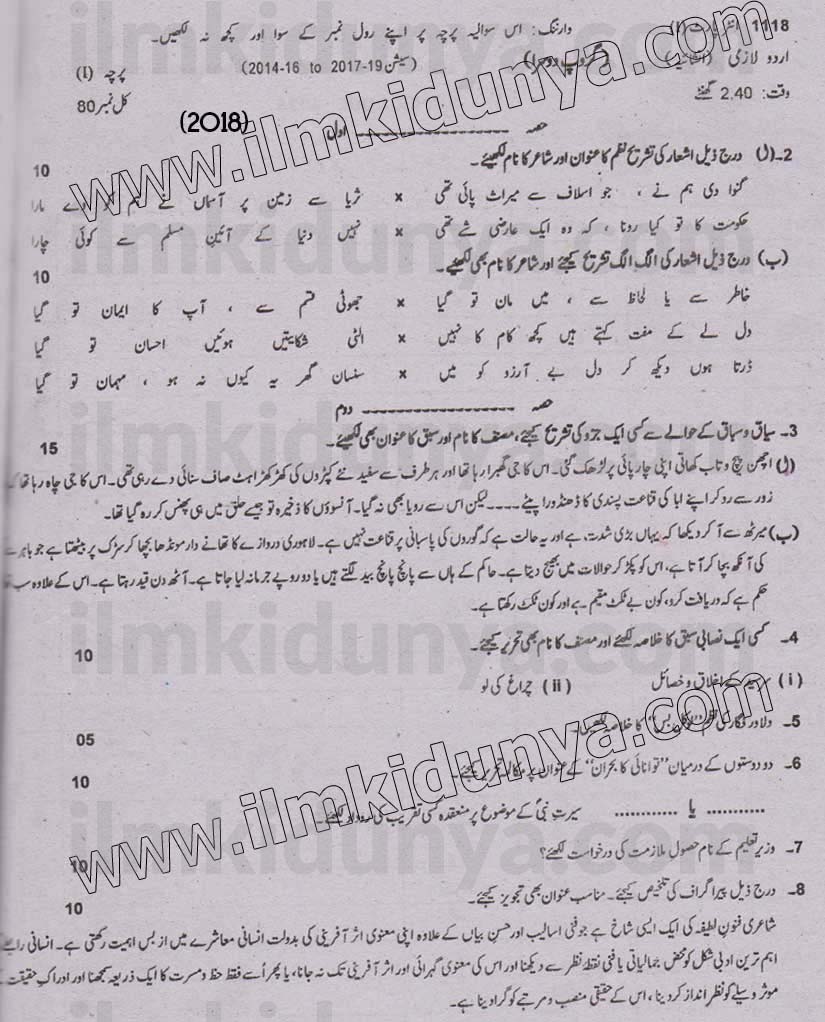 1118 انٹر پارٹ (I) وارننگ: اس سوالیہ پرچہ پر اپنے رول نمبر کے سوا اور کچھ نہ لکھیں۔
اردو لازمی (انشائیہ) (گروپ دوسرا) (سیشن 2014-16 to 2017-19) پرچہ (I)
وقت: 2.40 گھنٹے کل نمبر 80
(2018)
حصہ ---------------- اول
2۔ (ا) درج ذیل اشعار کی تشریح نظم کا عنوان اور شاعر کا نام لکھیئے۔ 10
گنوا دی ہم نے ، جو اسلاف سے میراث پائی تھی × ثریا سے زمین پر آسماں نے ہم کو دے مارا
حکومت کا تو کیا رونا ، کہ وہ ایک عارضی شے تھی × نہیں دنیا کے آئینِ مسلم سے کوئی چارا
(ب) درج ذیل اشعار کی الگ الگ تشریح کیجئے اور شاعر کا نام بھی لکھیئے۔ 10
خاطر سے یا لحاظ سے ، میں مان تو گیا × جھوٹی قسم سے ، آپ کا ایمان تو گیا
دل لے کے مفت کہتے ہیں کچھ کام کا نہیں × الٹی شکایتیں ہوئیں احسان تو گیا
ڈرتا ہوں دیکھ کر دل بے آرزو کو میں × سنسان گھر یہ کیوں نہ ہو ، مہمان تو گیا
حصہ ---------------- دوم
3۔ سیاق و سباق کے حوالے سے کسی ایک جزو کی تشریح کیجئے، مصنف کا نام اور سبق کا عنوان بھی لکھیئے۔ 15
(ا) اچھن پیچ و تاب کھاتی اپنی چارپائی پر لڑھک گئی۔ اس کا جی گھبرا رہا تھا اور ہر طرف سے سفید نئے کپڑوں کی کھڑکھڑاہٹ صاف سنائی دے رہی تھی۔ اس کا جی چاہ رہا تھا کہ
زور سے رو کر اپنے ابا کی قناعت پسندی کا ڈھنڈورا پیٹے ۔۔۔۔ لیکن اس سے رویا بھی نہ گیا۔ آنسوؤں کا ذخیرہ تو جیسے حلق میں ہی پھنس کر رہ گیا تھا۔
(ب) میرٹھ سے آ کر دیکھا کہ یہاں بڑی شدت ہے اور یہ حالت ہے کہ گوروں کی پاسبانی پر قناعت نہیں ہے۔ لاہوری دروازے کا تھانے دار مونڈھا بچھا کر سڑک پر بیٹھتا ہے جو باہر سے
کی آنکھ بچا کر آتا ہے، اس کو پکڑ کر حوالات میں بھیج دیتا ہے۔ حاکم کے ہاں سے پانچ پانچ بید لگتے ہیں یا دو روپے جرمانہ لیا جاتا ہے۔ آٹھ دن قید رہتا ہے۔ اس کے علاوہ سب تھا
حکم ہے کہ دریافت کرو، کون بے ٹکٹ مقیم ہے اور کون ٹکٹ رکھتا ہے۔
4۔ کسی ایک نصابی سبق کا خلاصہ لکھئے اور مصنف کا نام بھی تحریر کیجئے۔ 10
(i) سرسید کے اخلاق و خصائل (ii) چراغ کی لو
5۔ دلاور فگار کی نظم کا خلاصہ لکھیں۔ 05
6۔ دو دوستوں کے درمیان "توانائی کا بحران" کے عنوان پر مکالمہ تحریر کیجئے۔ 10
........... یا ........... سیرت نبیؐ کے موضوع پر منعقدہ کسی تقریب کی روداد لکھئے۔
7۔ وزیر تعلیم کے نام حصول ملازمت کی درخواست لکھئے؟ 10
8۔ درج ذیل پیراگراف کی تلخیص کیجئے۔ مناسب عنوان بھی تجویز کیجئے۔ 10
شاعری فنون لطیفہ کی ایک ایسی شاخ ہے جو فنی اسالیب اور حسن بیاں کے علاوہ اپنی معنوی اثر آفرینی کی بدولت انسانی معاشرے میں از بس اہمیت رکھتی ہے۔ انسانی رابطے
اہم ترین ادبی شکل کو محض جمالیاتی یا فنی نقطۂ نظر سے دیکھنا اور اس کی معنوی گہرائی اور اثر آفرینی تک نہ جانا، یا پھر اُسے فقط حظ و مسرت کا ایک ذریعہ سمجھنا اور ادراکِ حقیقت کے
موثر وسیلے کو نظر انداز کر دینا ، اس کے حقیقی منصب و مرتبے کو گرا دینا ہے۔
www.ilmkidunya.com
www.ilmkidunya.com
ilmkidunya.com
ilmkidunya.com
ilmkidunya.com
ilmkidunya.com
ilmkidunya.com